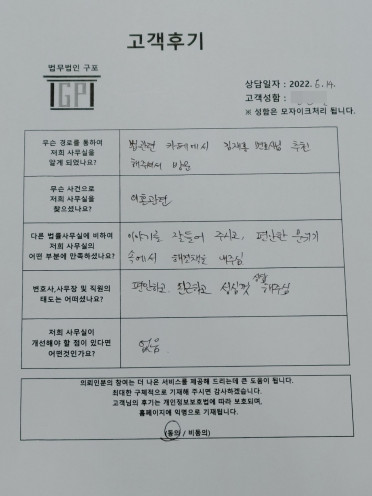 고객후기
법무법인 구포
GP
상담일자 : 2022. 6. 14.
고객성함 :
※ 성함은 모자이크처리 됩니다.
무슨 경로를 통하여
저희 사무실을
알게 되었나요?
법관련 카페에서 김재홍 변호사님 추천
해주셔서 방문
무슨 사건으로
저희 사무실을
찾으셨나요?
이혼관련
다른 법률사무실에 비하여
저희 사무실의
어떤 부분에 만족하셨나요?
이야기를 잘들어 주시고, 편안한 분위기
속에서 해결책을 내주심
변호사,사무장 및 직원의
태도는 어떠셨나요?
편안하고, 친근하고 성심껏 상담
해주심
저희 사무실이
개선해야 할 점이 있다면
어떤것인가요?
없음
의뢰인분의 참여는 더 나은 서비스를 제공해 드리는데 큰 도움이 됩니다.
최대한 구체적으로 기재해 주시면 감사하겠습니다.
고객님의 후기는 개인정보보호법에 따라 보호되며,
홈페이지에 익명으로 기재됩니다.
(동의 / 비동의)